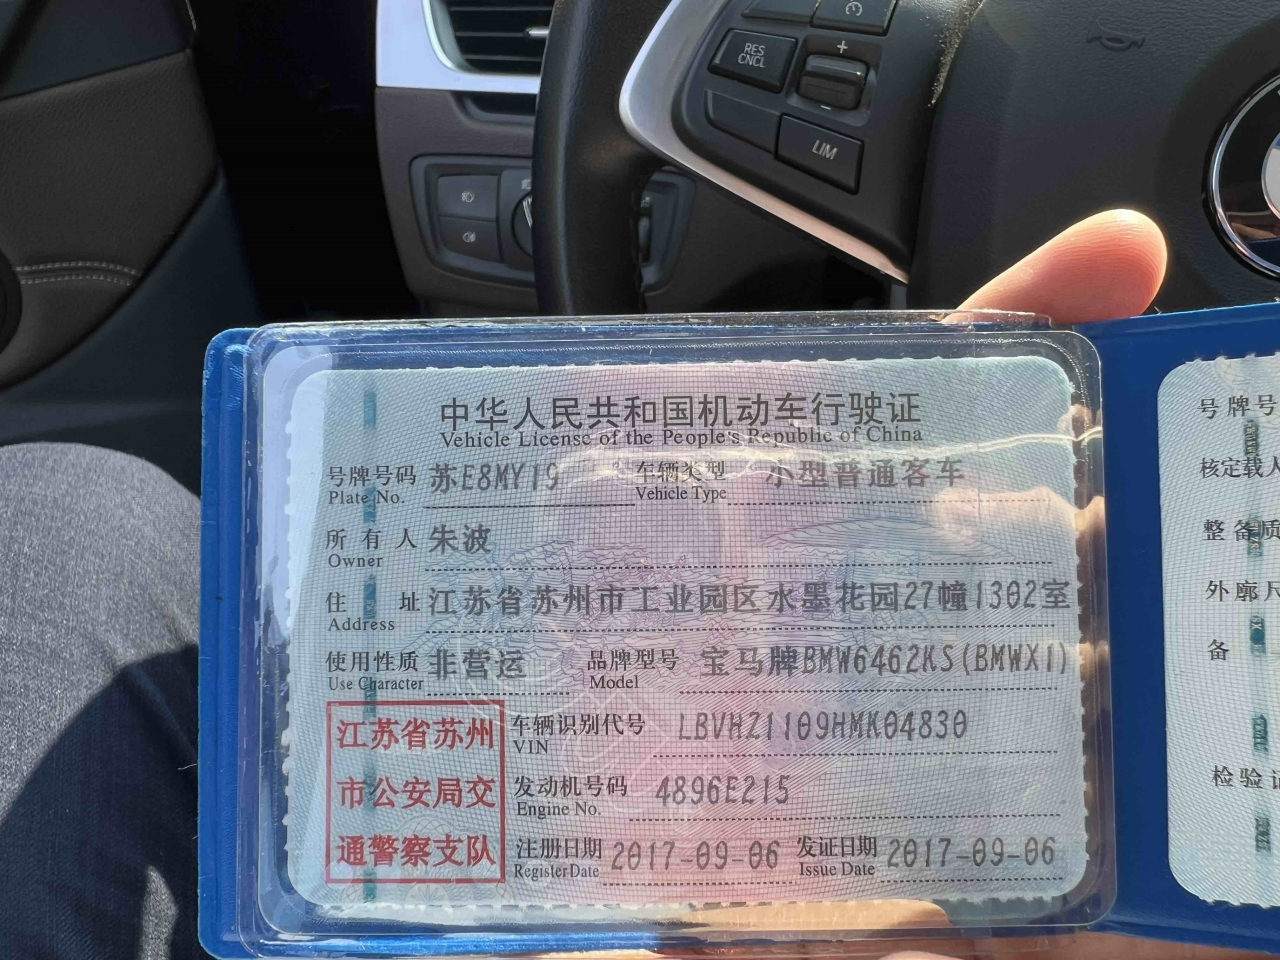 RES
CNCL
+
-
LIM
中华人民共和国机动车行驶证
Vehicle License of the People's Republic of China
号牌号码 苏E8MY19 车辆类型 小型普通客车
Plate No. Vehicle Type
所有人 朱波
Owner
住址 江苏省苏州市工业园区水墨花园27幢1302室
Address
使用性质 非营运 品牌型号 宝马牌BMW6462KS(BMWX1)
Use Character Model
江苏省苏州
市公安局交
通警察支队
车辆识别代号 LBVHZ1109HMK04830
VIN
发动机号码 4896E215
Engine No.
注册日期 2017-09-06 发证日期 2017-09-06
Register Date Issue Date
号牌号
核定载人
整备质
外廓尺
备
检验记